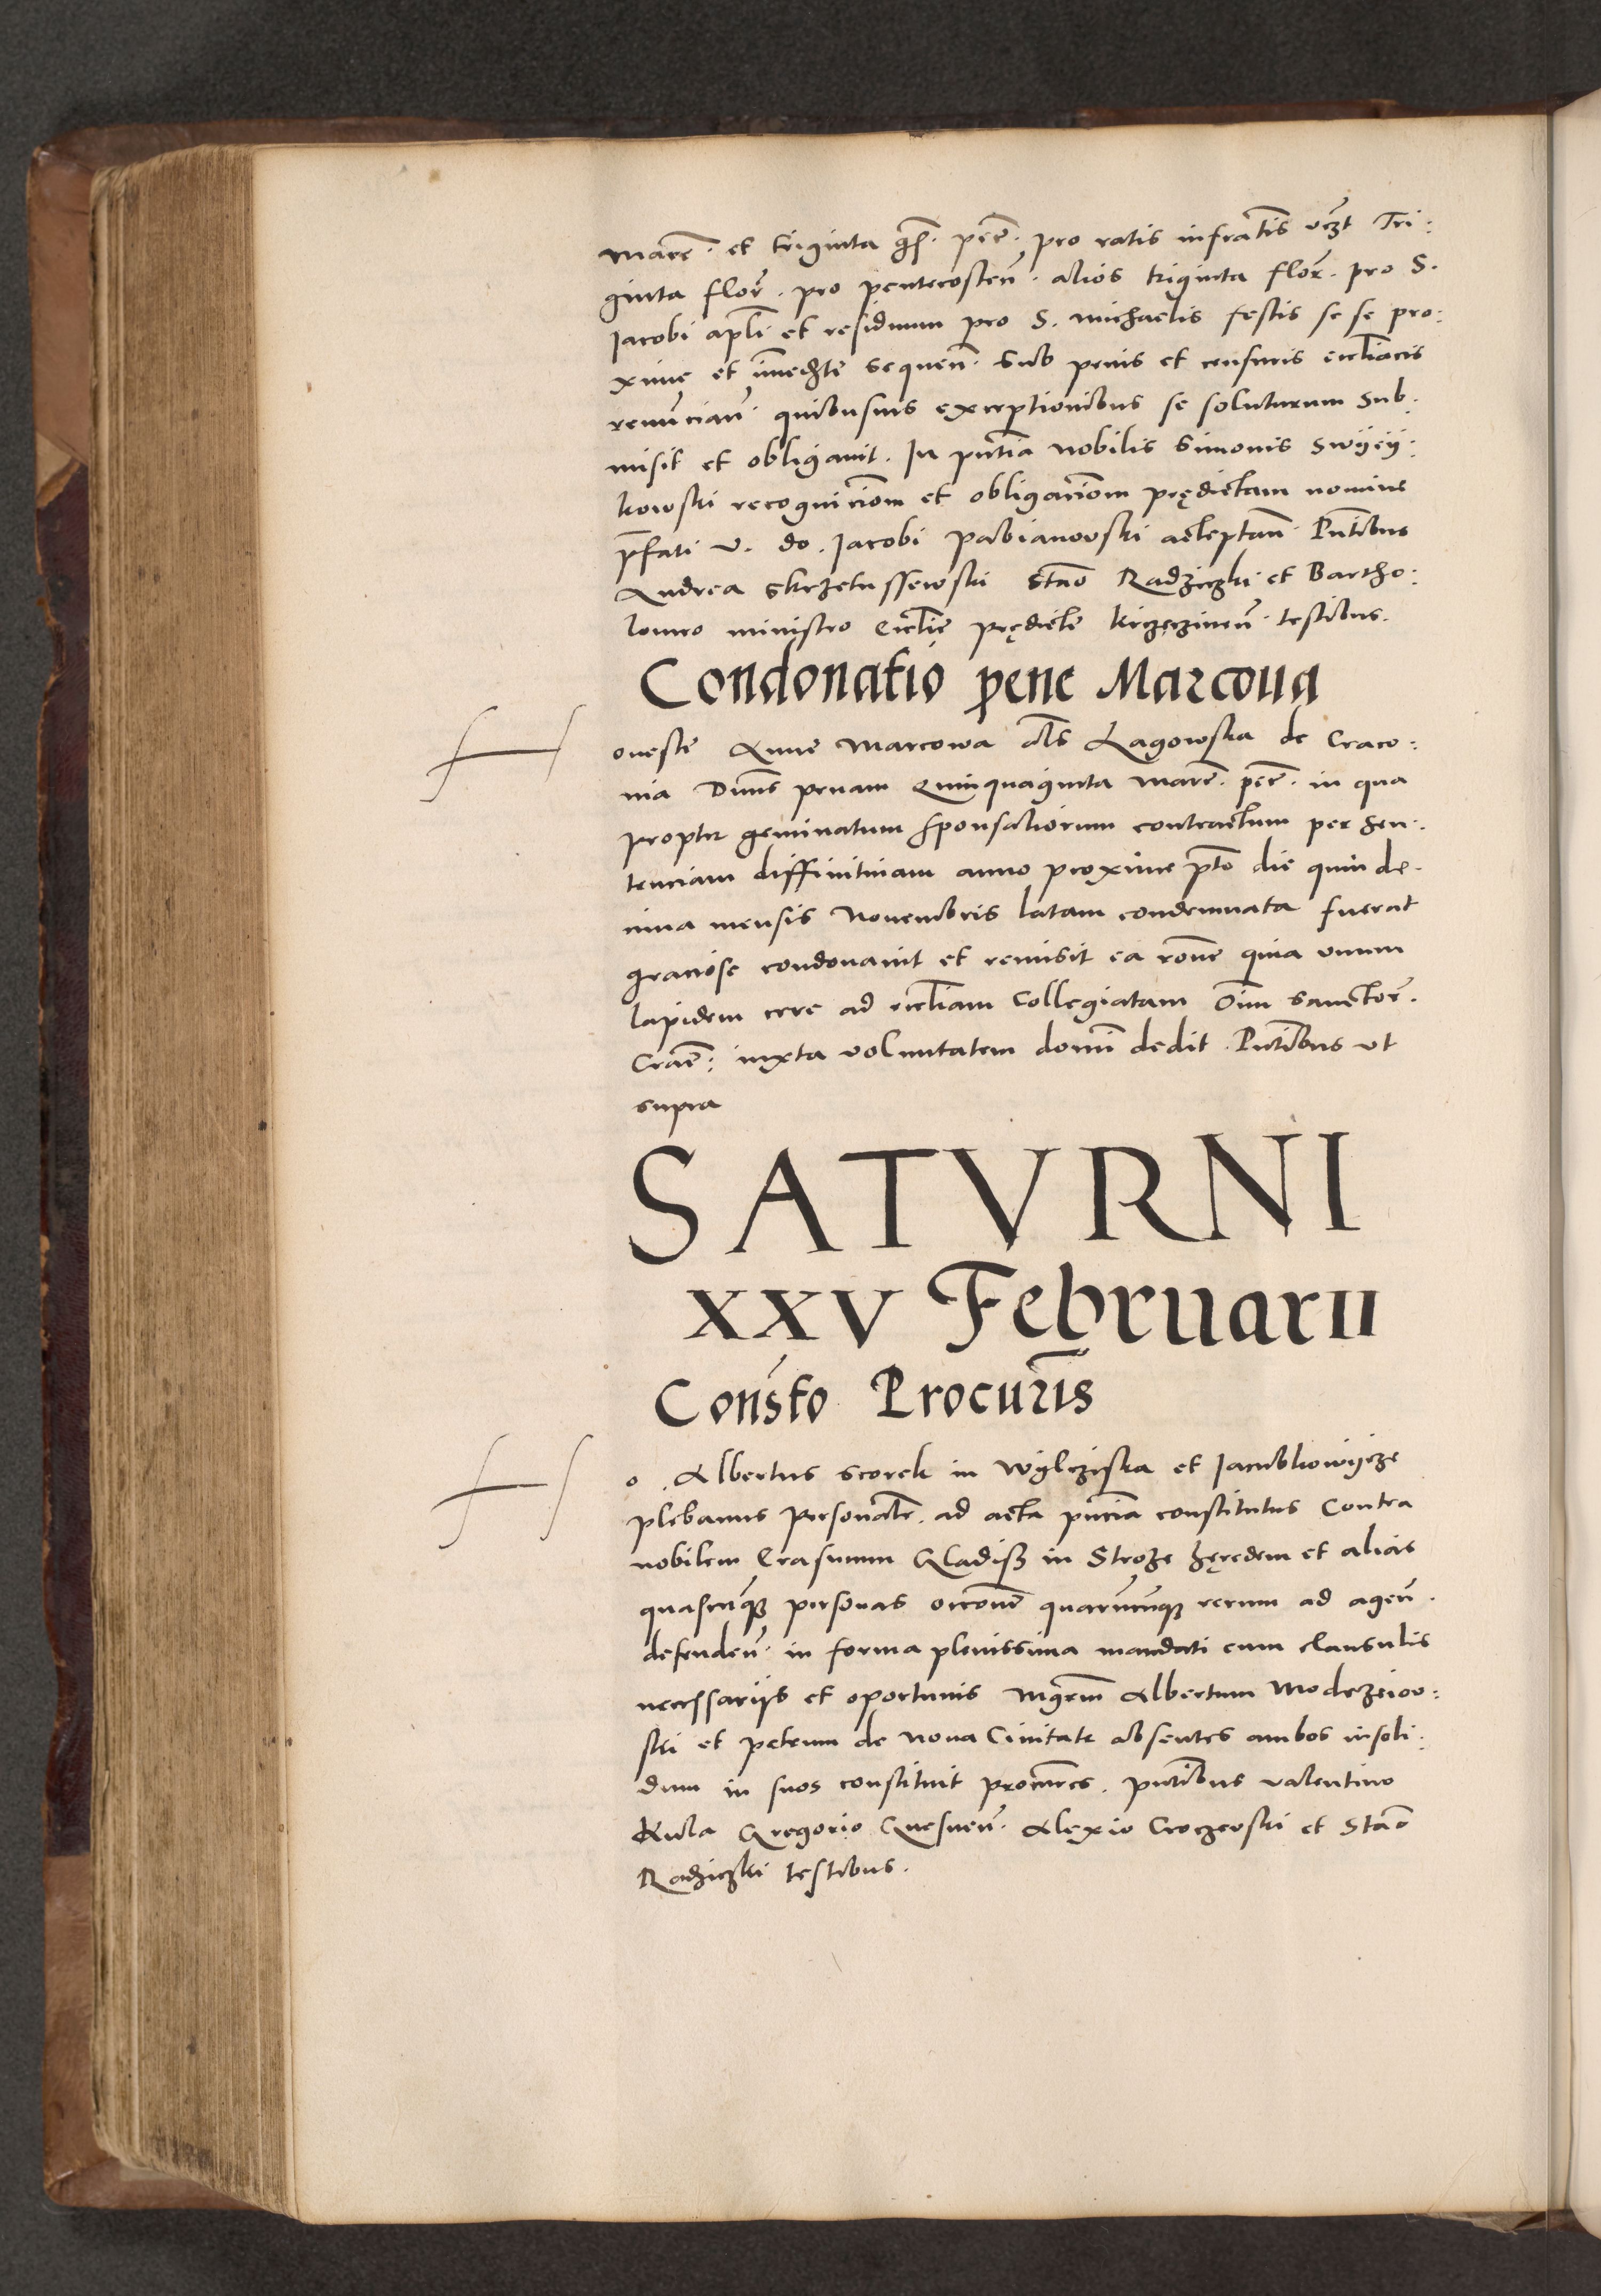 marc̃. et triginta gr̃. pec̃. pro ratis infrãtis vcz̃t Tri:
ginta flor̃. pro pentecosteñ. alios triginta flor̃. pro S.
Jacobi apl̃i et residuum pro S. michaelis festis se se pro:
xime et im̃edĩate sequeñ. sub penis et censuris eccl̃iacis
renũciañ. quibusuis exceptionibus se soluturum sub:
misit et obligauit. In pñtia nobilis Simonis Swijcij:
kowski recognicio͠m et obligacio͠m prędictam nomine
p̃fati v. do. Jacobi Pabianowski acceptañ. Pñtibus
Andrea Skrzetussewski Stão Radziczki et Bartho:
lomeo ministro Eccl̃ie prędicte krzęczineñ. testibus.
Condonatio pene Marcoua
H
oneste Anne Marcowa al̃s Lagowska de Craco:
uia Dũns penam Quinquaginta marc̃. pec̃. in qua
propter geminatum sponsaliorum contractum per sen:
tenciam diffinitiuam anno proxime pt̃o die quinde:
cima mensis Nouembris latam condemnata fuerat
graciose condonauit et remisit ea rõne quia vnum
lapidem cere ad eccl̃iam Collegiatam Oĩm Sanctor̃.
Crac̃: iuxta voluntatem domĩ dedit. Pñtibus vt
supra
SATVRNI
XXV Februarii
Const̃o Procur̃is
H
o. Albertus Scorek in Wijlcziska et Jacubkowijcze
plebanus Personal̃r. ad acta pñcia constitutus Contra
nobilem Erasmum Gladiss in Stroze hęredem et alias
quascũq; personas occõne quarũcũq; rerum ad ageñ.
defendeñ. in forma plenissima mandati cum clausulis
necessarijs et oportunis Mgr̃m Albertum Modrzeiow:
ski et petrum de Noua Ciuitate absentes ambos insoli:
dum in suos constituit procur̃es. pñtibus valentino
Kula Gregorio Gnesneñ. Alexio Croczewski et Stão
Radziczki testibus.